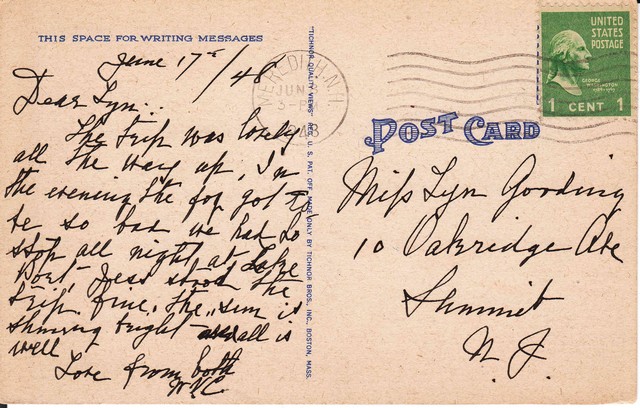 THIS SPACE FOR WRITING MESSAGES
June 17th / 48
Dear Lyn..
The trip was lovely
all the way up, In
the evening the fog got to
be so bad we had to
stop all night at Lake
Port, Jess stood the
trip fine. The sun is
shining bright all is
well
Love from both
"TICHNOR QUALITY VIEWS" REG. U. S. PAT. OFF. MADE ONLY BY TICHNOR BROS., INC., BOSTON, MASS.
MEREDITH, N.H.
JUN
3-P
48
UNITED
STATES
POSTAGE
GEORGE
WASHINGTON
1 CENT 1
POST CARD
Miss Lyn Gooding
10 Oakridge Ave
Summit
N. J.